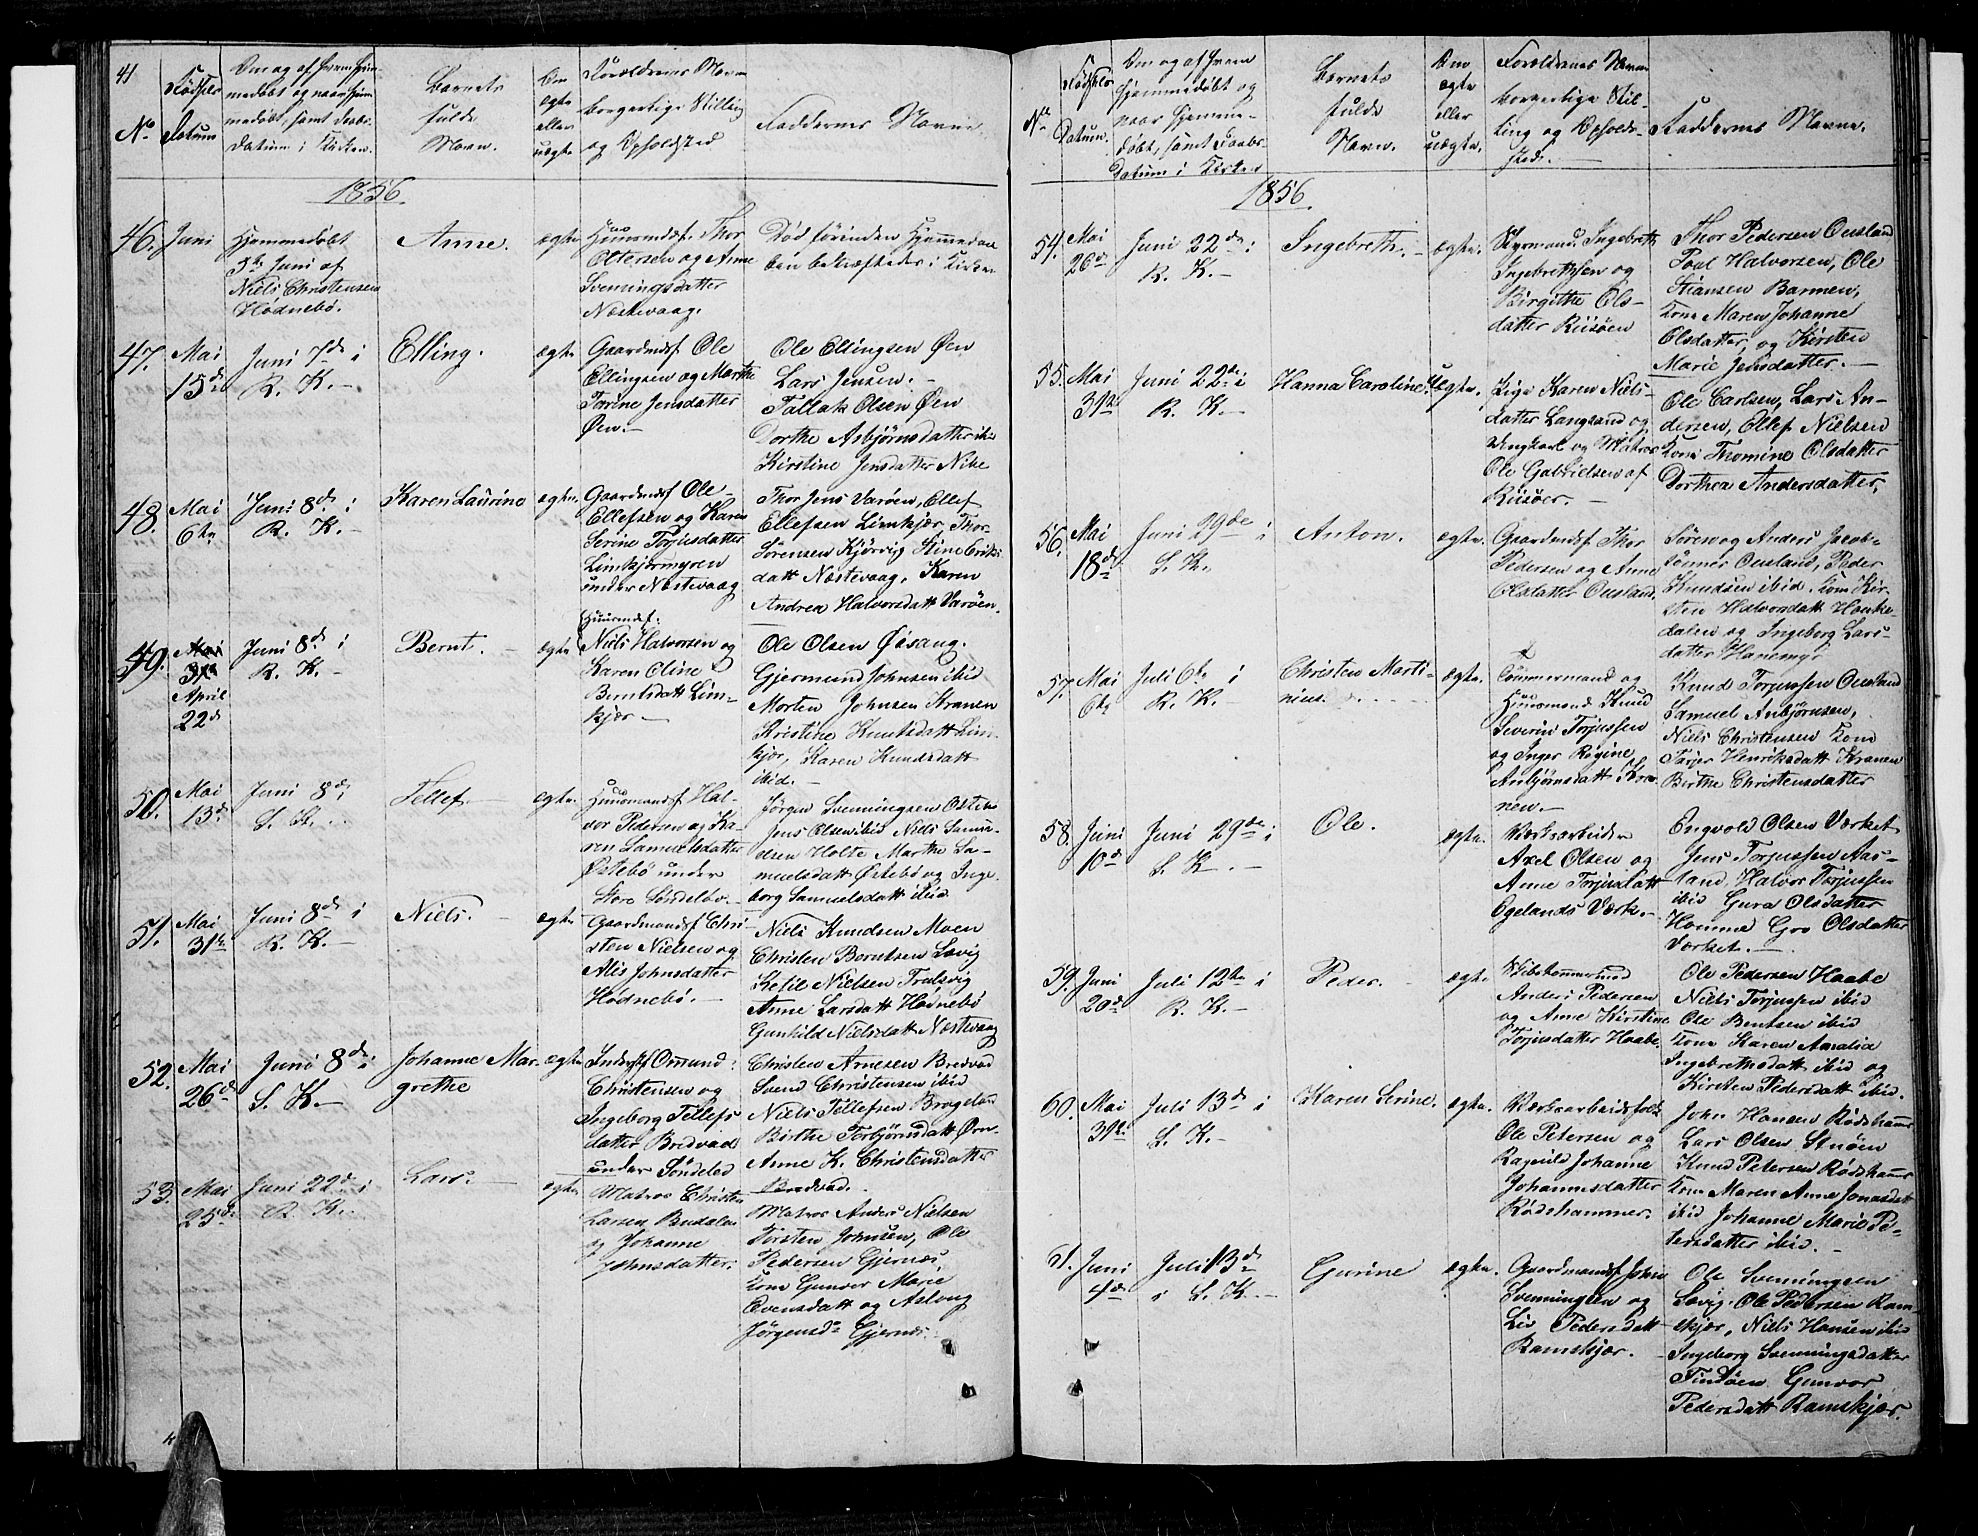 41
No
Fødsels
Datum
Om og af hvem hjem-
medøbt og naar hjem-
medøbt, samt Daabs-
Datum i Kirken.
Barnets
fulde
Navn.
Om
ægte
eller
uægte
Forældrenes Navn
borgerlige Stilling
og Opholdsted
Faddernes Navne
1856.
46. Juni
Hjemmedøbt
5te Juni af
Niels Christensen
Hødnebø.
Anne.
ægte
Huusmdsf. Thor
Oltersen og Anne
Svenningsdatter
Næstevaag.
Død förinden Hjemmedaa-
ben bekræftedes i Kirken
47. Mai
15de
Juni 7de i
R. K.
Elling.
ægte
Gaardmdsf Ole
Ellingsen og Marthe
Torine Jensdatter
Øen.
Ole Ellingsen Øen
Lars Jensen.
Tallak Olsen Øen
Dorthe Asbjørnsdatter ibid
Kirstine Jensdatter Nike
48. Mai
6te
Juni 8de i
R. K.
Karen Laurine
ægte.
Gaardmdsf Ole
Ellefsen og Karen
Serine Torjusdatter
Limkjærmyren
under Næstevaag
Thor Jens Varøen, Ellef
Ellefsen Limkjær, Thor
Sörensen Kjörvig Stine Eriks
datt Næstevaag, Karen
Andrea Halvorsdatt Varøen.
49. Mai
31te
April
22de
Juni 8de i
R. K.
Bernt.
ægte
Huusmdsf.
Niels Halvorsen og
Karen Oline
Berntsdatt Lim-
kjær
Ole Olsen Øisang.
Gjermund Johnsen ibid
Morten Johnsen Kranen
Kristine Knutsdatt Lim-
kjær, Karen Knudsdatt
ibid.
50. Mai
13de
Juni 8de i
S. K.
Tellef.
ægte.
Huusmandsf Hal-
vor Pedersen og Ka-
ren Samuelsdatter
Østebø under
Store Søndeløv.
Jørgen Svenningsen Østebø
Jens Olsen ibid Niels Samu-
elsen Holte Marthe Sa-
muelsdatt Østebø og Inge-
borg Samuelsdatt ibid
51. Mai
31te
Juni 8de i
R. K.
Niels.
ægte
Gaardmandsf Chri-
sten Nielsen og
Alis Johnsdatter
Hødnebø.
Niels Knudsen Moen
Christen Berntsen Savig
Ketil Nielsen Tralsvig
Anne Larsdatt Hødnebø
Gunhild Nielsdatt Næstevaag
52. Mai
26de
Juni 8de i
S. K.
Johanne Mar-
grethe
ægte
Inderstf Omund
Christensen og
Ingeborg Tellefs
datter Bredvad
under Søndeled
Christen Arnesen Bredvad
Svend Christensen ibid
Niels Tellefsen Brogeland
Birthe Torbjørnsdatt Örn-
Anne K. Christensdatter
Bredvad.
53. Mai
25de
Juni 22de i
R. K.
Lars.
ægte
Matros Christen
Larsen Budalen
og Johanne
Jahnsdatter.
Matros Anders Nielsen
Torsten Johnsen, Ole
Pedersen Gjernæs,
Kone Gunvor Marie
Evensdatt og Aslaug
Jörgensd. Gjernæs.
No
Fødsels
Datum.
Om og af hvem
hjemmedøbt og
naar hjemme-
døbt, samt Daabs-
Datum i Kirken
Barnets
fulde
Navn.
Om
ægte
eller
uægte.
Forældrenes Navne
borgerlige Stil-
ling og Opholds-
sted.
Faddernes Navne.
1856.
54. Mai
26de
Juni 22de i
R. K.
Ingebreth.
ægte.
Styrmand Ingebreth
Ingebrethsen og
Birgithe Ols-
datter Riisøen
Thor Pedersen Ousland
Poul Halvorsen, Ole
Stiansen Barmen,
Kone Maren Johanne
Olsdatter, og Kirsten
Marie Jensdatter.
55. Mai
31te
Juni 22de i
R. K.
Hanna Caroline
Uægte.
Pige Karen Niels-
datter Langsand og
Ungkarl og Matros
Ole Gabrielsen af
Riisøer.
Ole Carlsen, Lars An-
dersen, Ellef Nielsen
Kone Thomine Olsdatter
Dorthea Andersdatter,
56. Mai
18de
Juni 29de i
S. K.
Anton.
ægte.
Gaardmdsf Thor
Pedersen og Anne
Olsdatter Ousland.
Søren og Anders Jacob-
sønner Ousland, Peder
Knudsen ibid. Kone Kir-
sten Halvorsdatt Houke-
dalen og Ingeborg Lars-
datter Hanemyr
57. Mai
6te
Juli 6te i
R. K.
Christen Marti-
nius.
ægte.
Tømmermand og
Huusmand Knud
Severin Torjussen
og Inger Regine
Asbjørnsdatt Kra-
nen.
Knud Torjussen Ousland
Samuel Asbjørnsen,
Niels Christensen Kone
Tarjer Henriksdatt Kranen
Birthe Christensdatter
58. Juni
10de
Juni 29de i
S. K.
Ole.
ægte.
Værksarbeider
Axel Olsen og
Anne Torjusdatt
Egelands Værk.
Engvold Olsen Værket
Jens Torjussen Aas-
land, Halvor Torjussen
ibid Guro Olsdatter
Homme Gro Olsdatter
Værket.
59. Juni
20de
Juli 12te i
R. K.
Peder.
ægte.
Skibstømmermd
Anders Pedersen
og Anne Kirstine
Torjusdatter Haabe.
Ole Pedersen Haabe
Niels Torjussen ibid
Ole Bentsen ibid
Kone Karen Amalia
Ingebrethsdatt ibid og
Kirsten Pedersdatt ibid.
60. Mai
31te
Juli 13de i
S. K.
Karen Serine.
ægte.
Værksarbeidsfolk
Ole Petersen og
Ragnild Johanne
Johannesdatter
Rødshammer.
John Hansen Rødshammer
Lars Olsen Stuøen
Knud Petersen Rødshammer
Kone Maren Anne Jonasdatt
ibid Johanne Marie Pe-
tersdatter ibid.
61. Juni
4de
Juli 13de
i S. K.
Gurine
ægte.
Gaardmandsf John
Svenningsen og
Liv Pedersdatt
Ramskjær.
Ole Svenningsen
Savig. Ole Pedersen Ram-
skjær, Niels Hansen ibid
Ingeborg Svenningsdatter
Tindøen Gunvor
Pedersdatt Ramskjær.